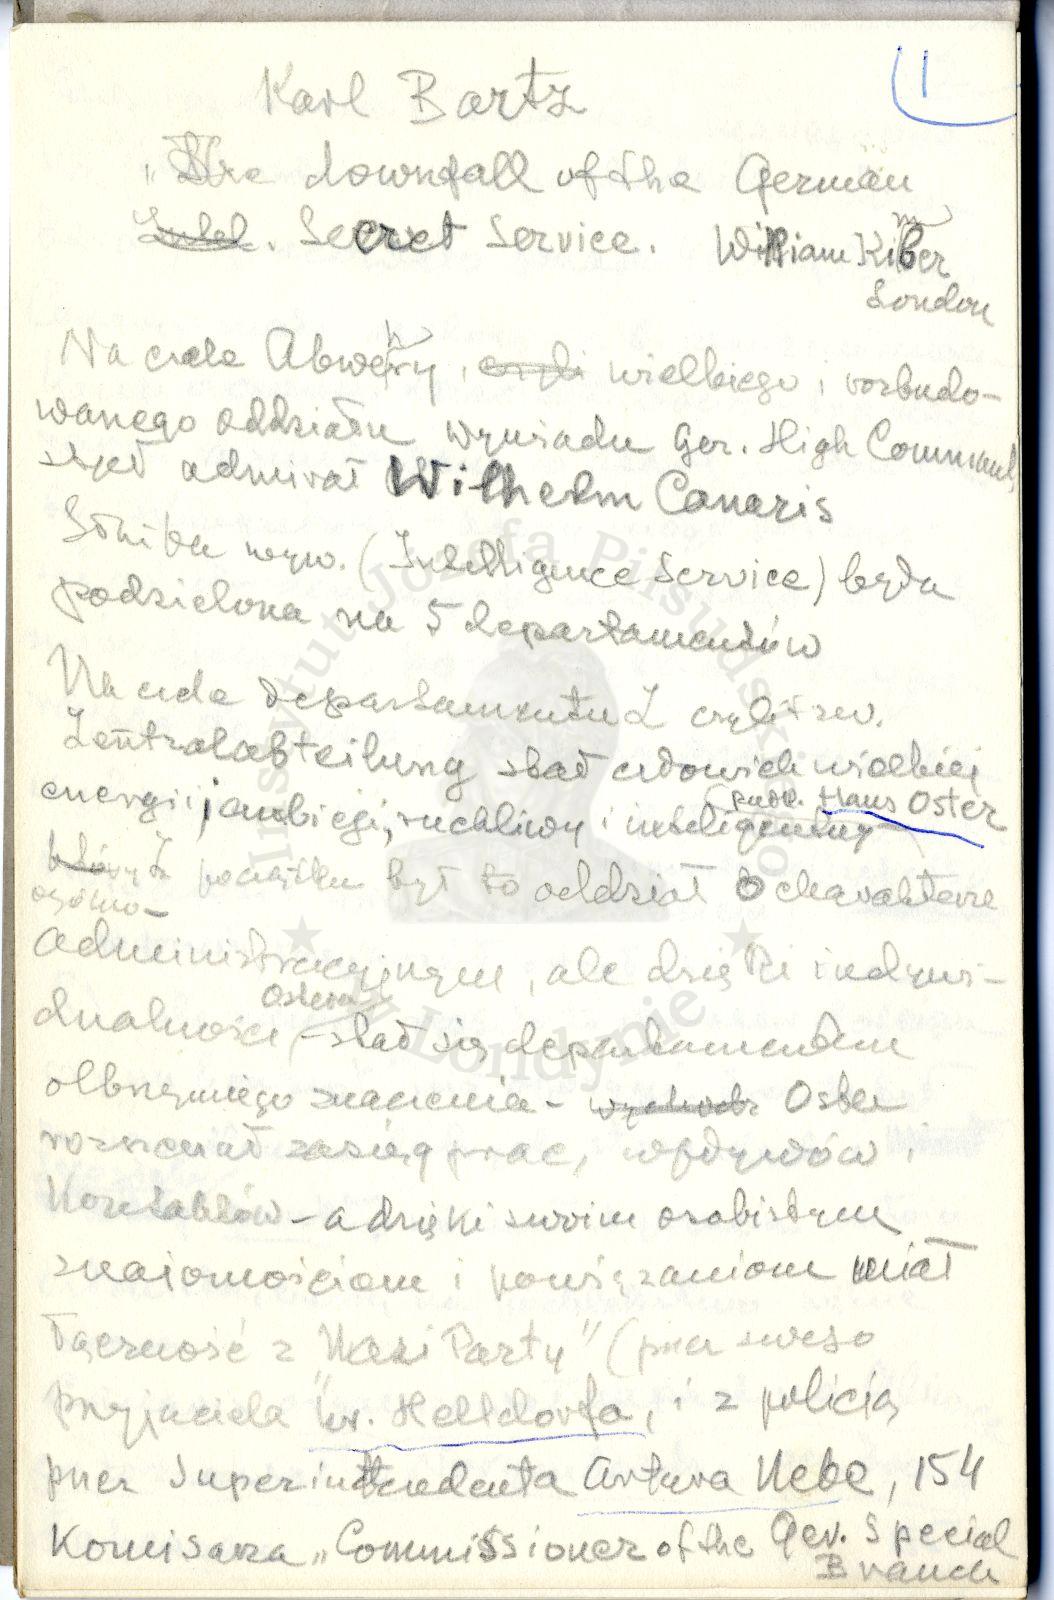 1
Karl Bartz
"The downfall of the German
Secret Service. William Kimber
London
Na czele Abwehry, wielkiego i rozbudo-
wanego oddziału wywiadu Ger. High Command,
stał admirał Wilhelm Canaris
Służba wyw. (Intelligence Service) była
podzielona na 5 departamentów
Na czele Departamentu Z czyli t.zw.
Zentralabteilung stał człowiek wielkiej
energii i ambicji, ruchliwy i inteligentny
Hans Oster
Z początku był to oddział o charakterze
ogólno-
administracyjnym, ale dzięki indywi-
dualności Ostera stał się departamentem
olbrzymiego znaczenia - Oster
rozszerzał zasięg prac, wpływów i
Kontaktów - a dzięki swoim osobistym
znajomościom i powiązaniom miał
łączność z "Nazi Party" (przez swego
przyjaciela hr. Helldorfa, i z policją
przez Superintendenta Artura Nebe, 154
Komisarza "Commissioner of the Ger. Special
Branch
Instytut Józefa Piłsudskiego
w Londynie